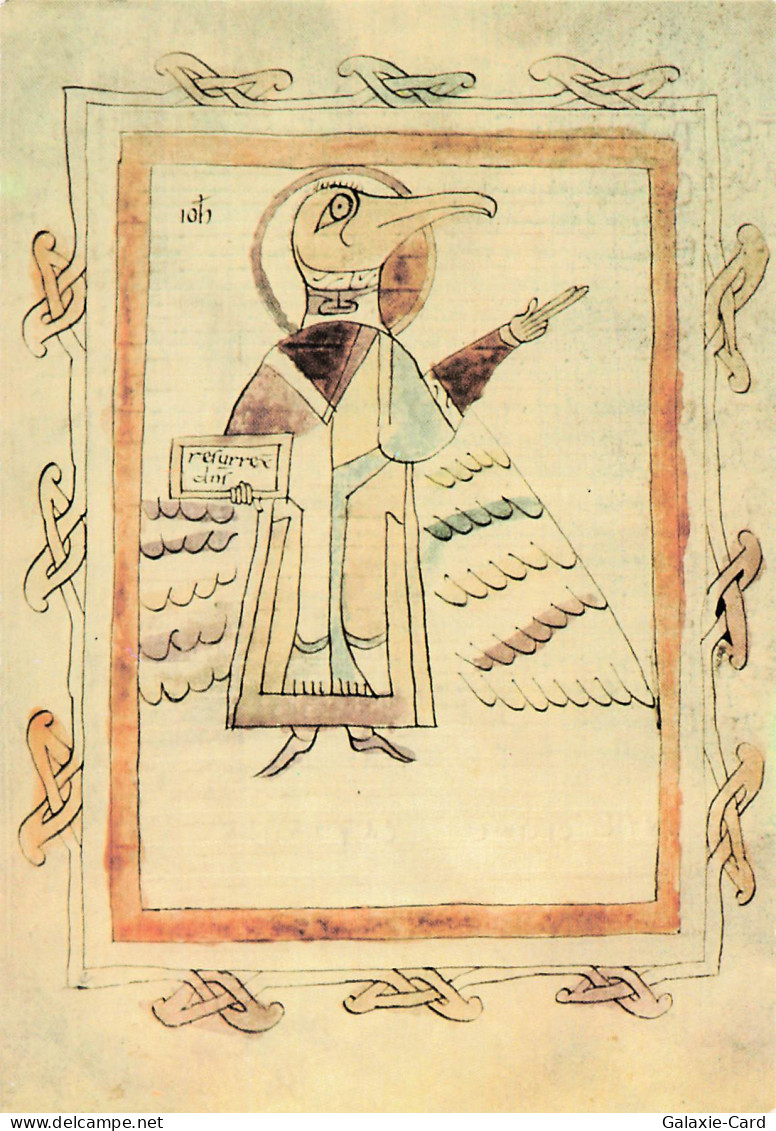 ioħ
resurrec̄
dn̄i
www.delcampe.net
Galaxie-Card